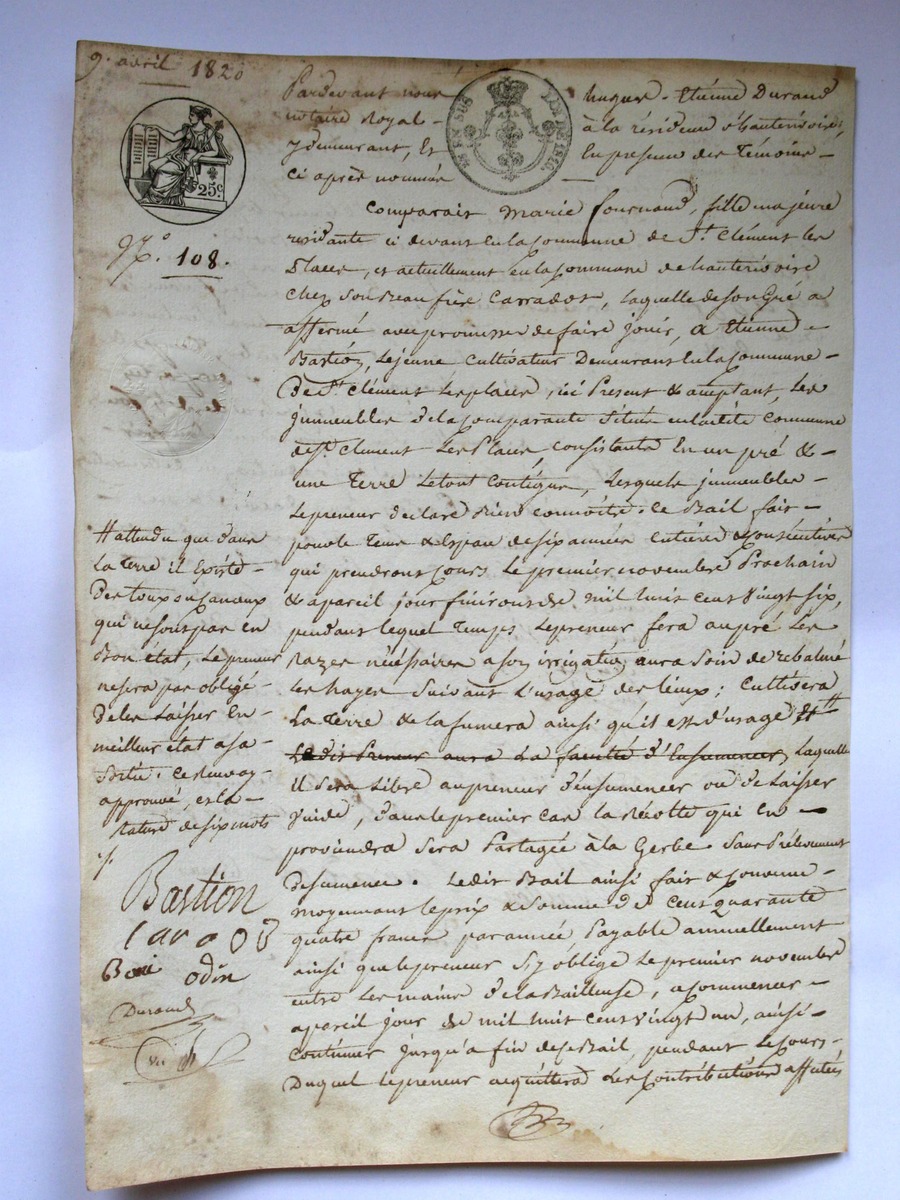 9. avril 1820
25c
EN SUS
LOI DE 1816.
N.º 108.
Pardevant nous hugue - Etienne Durand
notaire Royal - à la résidence d'hauterivoire,
y demeurant, Et En presence des Témoins -
Ci après nommés
Comparait Marie fournand, fille majeure
residante ci devant en la Commune de St. Clément les
Places, et actuellement en la Commune de hauterivoire
Chez son Beau frère Carradot, laquelle de son Gré a
affermé avec promesse de faire jouir, a Etienne -
Bastion, Lejeune Cultivateur Demeurant en la Commune -
De St. Clément Les places, ici Present & aceptant, Les
jmmeubles de la Comparante Situés en ladite Commune
de St. Clement Les Places, Consistants En un pré & -
une Terre Letout Contigue, Lesquels jmmeubles -
Le preneur declare Bien connoitre. Ce Bail fait -
pour le Tems & Espace de six années Entières & Consécutives
qui prendront Cours Le premier novembre Prochain
& a pareil jour finiront de mil huit Cent Vingt six,
pendant lequel Temps Le preneur fera au pré Les
Razes nécéssaires a son irrigation, aura soin de
Les hayes Suivant L'usage des lieux ; Cultivera
La Terre & la fumera ainsi qu'il est d'usage #
Le dit Preneur aura La faculté d'Ensemencer, Laquelle
Il Sera Libre au preneur d'ensemencer ou de Laisser
Vuide, dans le premier Cas la Récolte qui En -
proviendra Sera Partagée à la Gerbe Sans Prélevement
De semence. Le dit Bail ainsi fait & Convenu -
moyennant le prix & Somme de Cent quarante
quatre francs par année, Payable annuellement
ainsi que le preneur S'y oblige Le premier novembre
entre Les mains de la Bailleuse, a Commencer -
a pareil jour de mil huit Cent Vingt un, ainsi -
Continuer jusqu'a fin de Bail, pendant Le Cours -
Duquel le preneur acquittera Les Contributions affectées
# attendu que dans
La terre il Existe -
Des ou Canaux
qui ne sont pas en
Bon état, Le preneur
ne sera pas obligé -
de les Laisser En -
meilleur état a sa
Sortie. Ce renvoy
approuvé, et la -
rature de six mots
Bastion
Odin
Durand